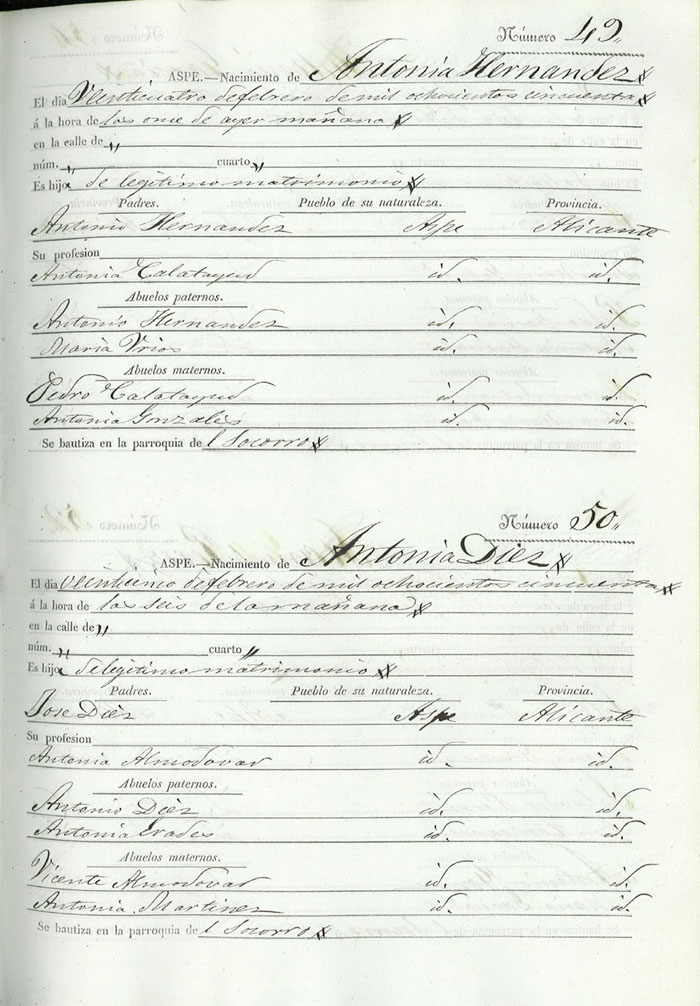 Número 49,,
ASPE.—Nacimiento de Antonia Hernandez
El dia Venticuatro de febrero de mil ochocientos cincuenta
á la hora de las once de ayer mañana
en la calle de ,,
núm. ,, cuarto ,,
Es hija de legitimo matrimonio
Padres. Pueblo de su naturaleza. Provincia.
Antonio Hernandez Aspe Alicante
Su profesion
Antonia Calatayud id. id.
Abuelos paternos.
Antonio Hernandez id. id.
Maria Vrios id. id.
Abuelos maternos.
Pedro Calatayud id. id.
Antonia Gonzales id. id.
Se bautiza en la parroquia de l Socorro
Número 50,,
ASPE.—Nacimiento de Antonia Diez
El dia veinticinco de febrero de mil ochocientos cincuenta
á la hora de las seis de la mañana
en la calle de ,,
núm. ,, cuarto ,,
Es hija de legitimo matrimonio
Padres. Pueblo de su naturaleza. Provincia.
Jose Diez Aspe Alicante
Su profesion
Antonia Almodovar id. id.
Abuelos paternos.
Antonio Diez id. id.
Antonia Erades id. id.
Abuelos maternos.
Vicente Almodovar id. id.
Antonia Martinez id. id.
Se bautiza en la parroquia de l Socorro